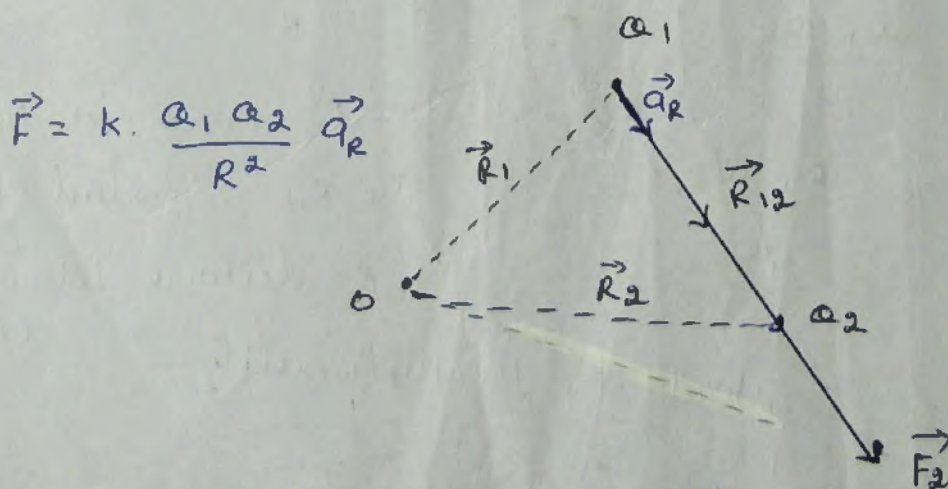 Q1
F⃗ = k. Q1 Q2 / R² a⃗R
a⃗R
R⃗1
R⃗12
O
R⃗2
Q2
F⃗2